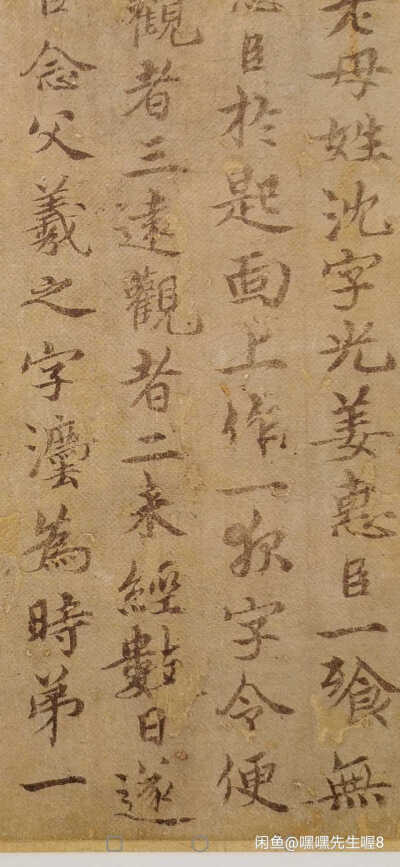 老母姓沈字光姜惠臣一飡無
惠臣於起面上作一夜字令便
觀者三遠觀者二来經數日遂
臣念父羲之字法為時弟一
闲鱼@嘿嘿先生喔8